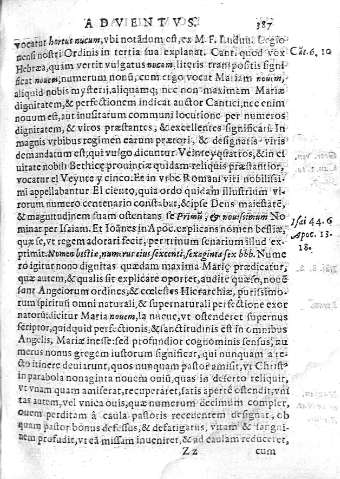 ADVENTVS. 387
vocatur hortus nucum, vbi notādom est, ex M. F. Ludou. Legio-
nensi nostri Ordinis in tertia sua explanat. Cant. quod vox
Cāt. 6. 10
Hebræa, quam vertit vulgatus nucum, literis transpositis signi-
ficat nouem, numerum nonū, cum ergo vocat Mariam nouem,
aliquid nobis mysterij, aliquamq; nec non maximam Mariæ
dignitatem, & perfectionem indicat auctor Cantici, nec enim
nouum est, aut inusitatum communi locutione per numeros
dignitatem, & viros præstantes, & excellentes significari. In
magnis vrbibus regimen earum prætori, & designatis viris
demandatum est, qui vulgo dicuntur Veinte y quatros, & in ci-
uitate nobis Bethicę prouinciæ quidam reliquis præstantior,
vocatur el Veynte y cinco. Et in vrbe Romani viri nobilissi-
mi appellabantur El ciento, quia ordo quidam illustrium vi-
rorum numero centenario constabat, & ipse Deus maiestatē,
& magnitudinem suam ostentans se Primū, & nouissimum No
Isai 44. 6
minat per Isaiam. Et Ioānes in Apoc. explicans nomen bestiæ,
Apoc. 13.
quæ se, vt regem adorari fecit, per trinum senarium illud ex-
18.
primit. Numerus bestiæ, numerus eius sexcenti, sexaginta sex bbb. Nume
ro igitur nono dignitas quædam maxima Mariæ prædicatur,
quæ autem, & qualis sit explicare oportet, audite quæso, nouē
sunt Angelorum ordines, & cœlestes Hierarchiæ, purissimo-
rum spirituū omni naturali, & supernaturali perfectione exor
natorū: dicitur Maria nouem, la nueue, vt ostenderet supernus
scriptor, quidquid perfectionis, & sanctitudinis est in omnibus
Angelis, Mariæ inesse: sed profundior cognominis sensus, nu
merus nonus gregem iustorum significat, qui nunquam a re-
cto itinere deuiarunt, quos nunquam pastor amisit, vt Christus
in parabola nonaginta nouem ouiū, quas in deserto reliquit,
vt vnam quam amiserat, recuperaret, satis apertè ostendit, vni
tas autem, vel vnica ouis, quæ numerum decimum complet,
ouem perditam à caula pastoris recedentem designat, ob
quam pastor bonus defessus, & defatigatus, vitam & sangui-
nem profudit, vt eā missam inueniret, & ad caulam reduceret,
Zz
cum